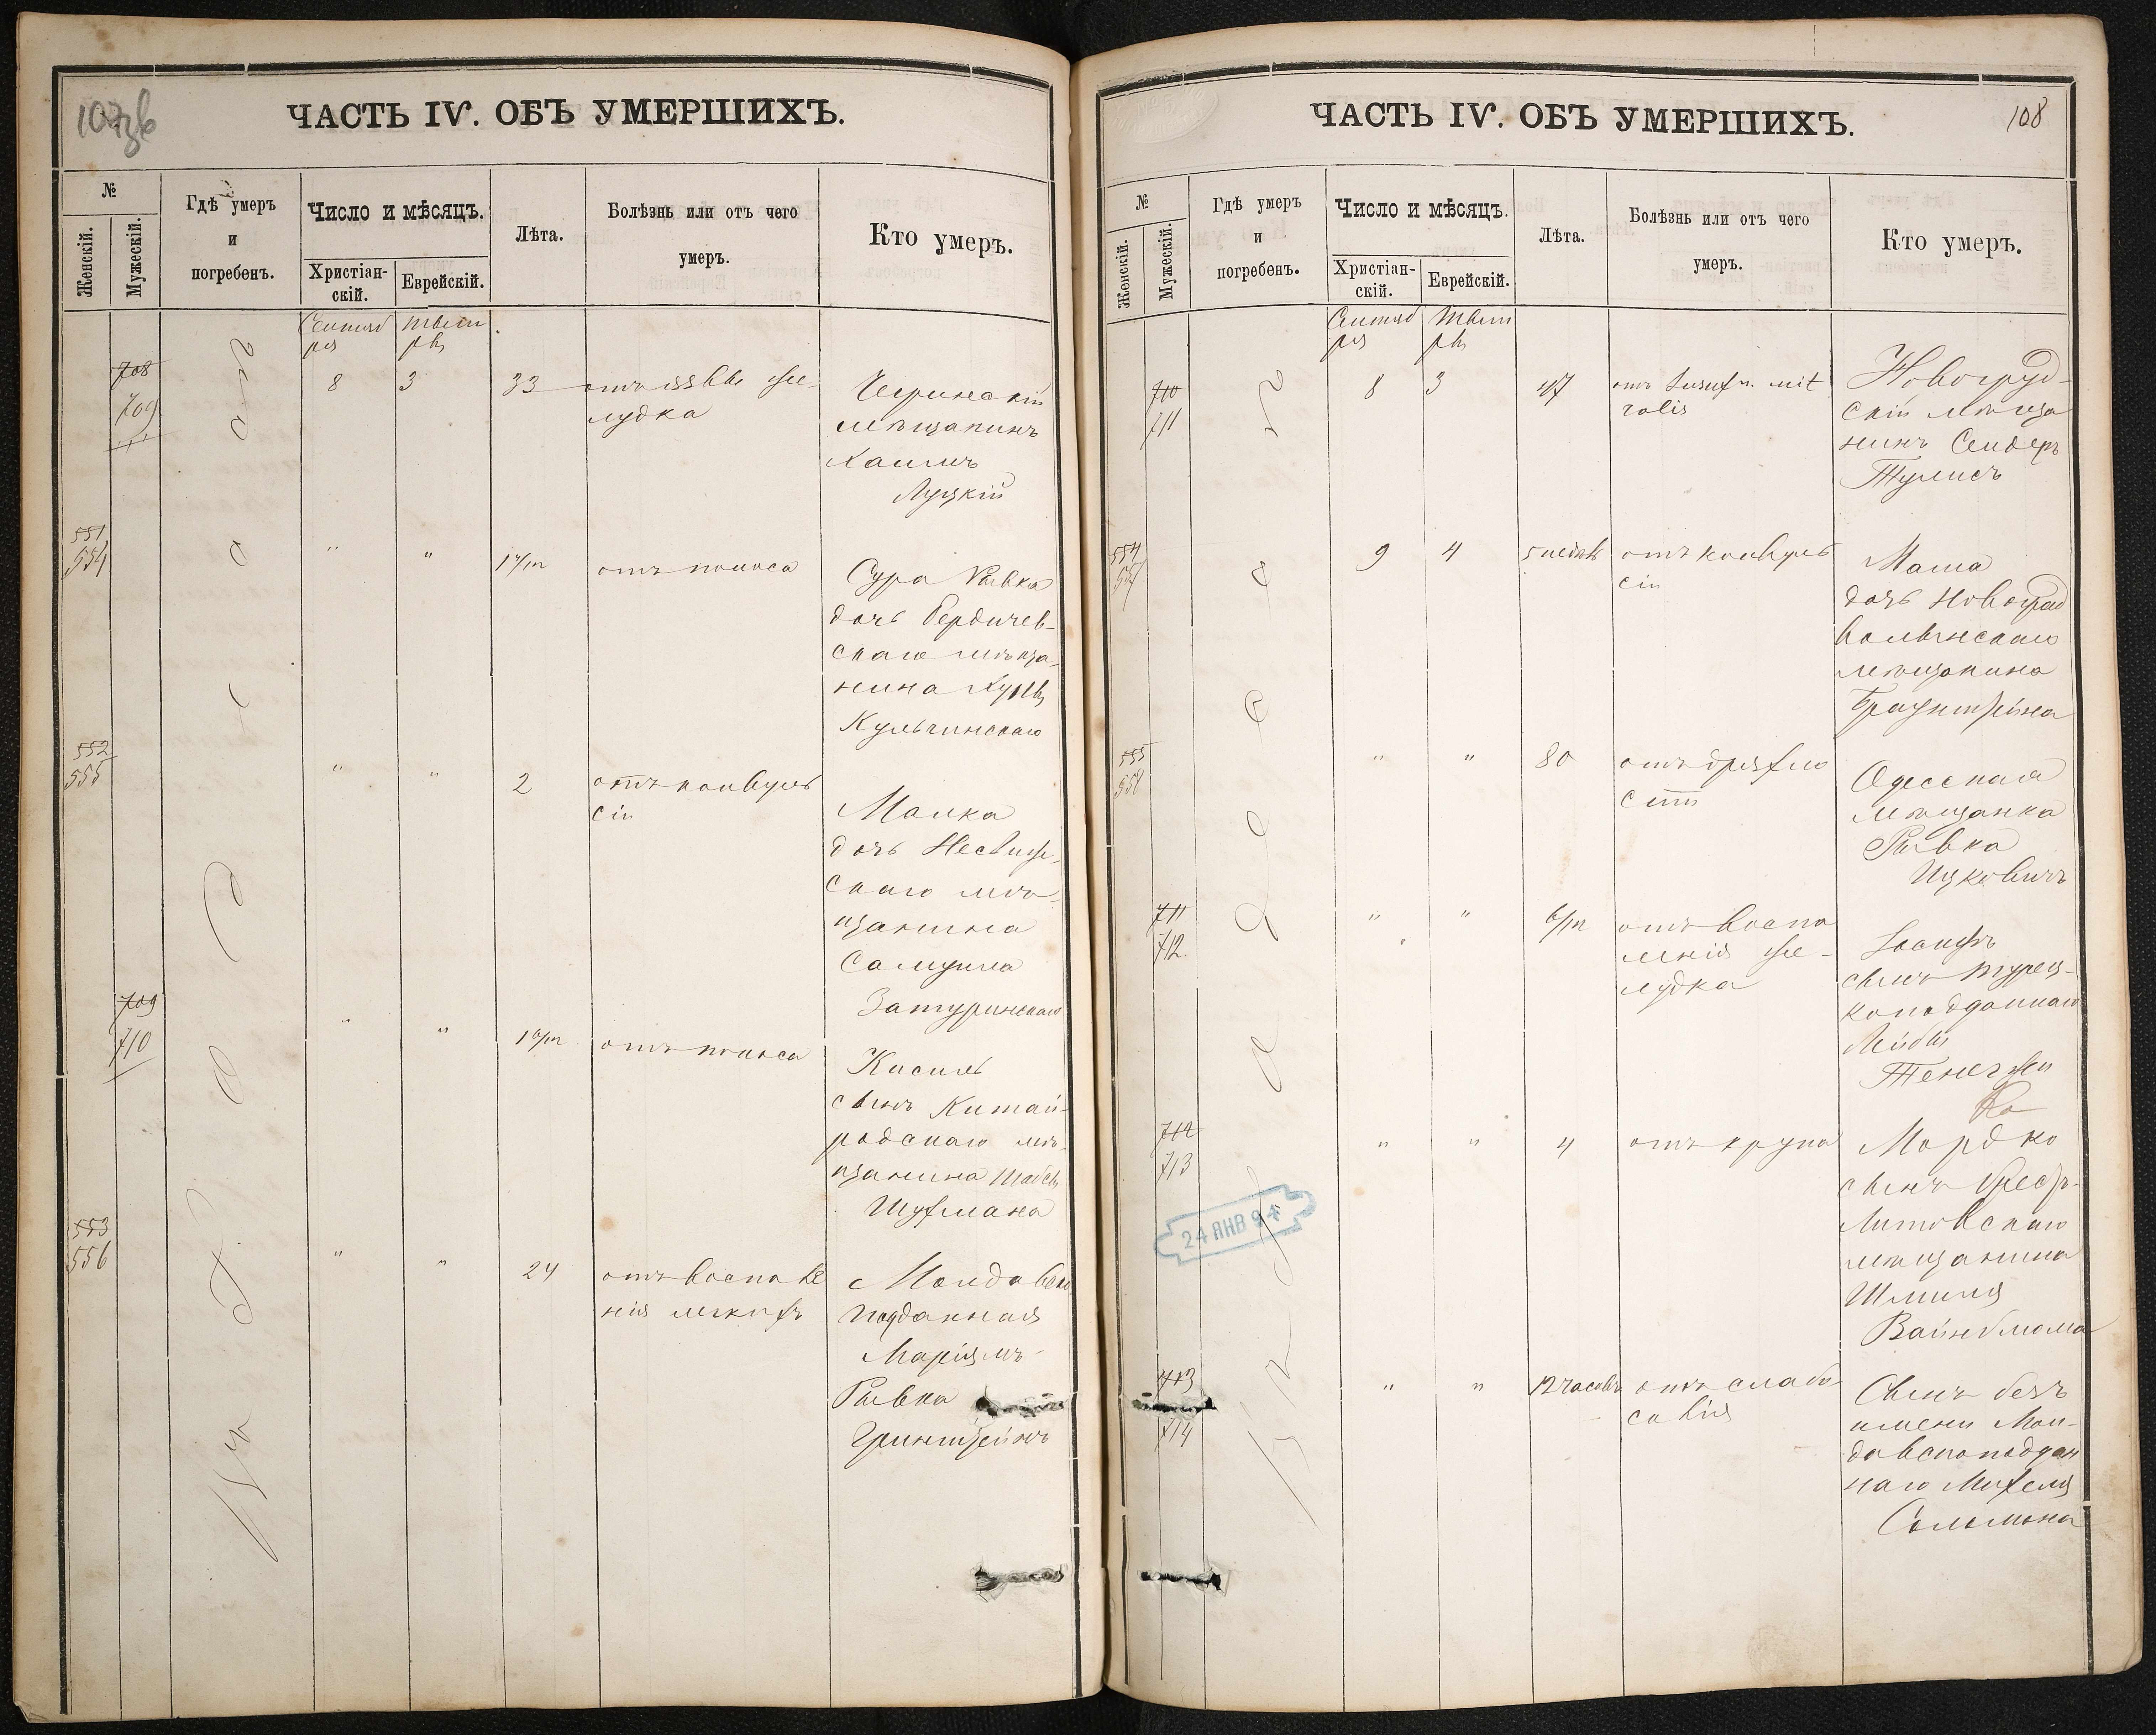 ЧАСТЬ IV. ОБЪ УМЕРШИХЪ.
№
Женскій.
Мужескій.
Гдѣ умеръ
и
погребенъ.
Число и мѣсяцъ.
Христіан-
скій.
Еврейскій.
Лѣта.
Болѣзнь или отъ чего
умеръ.
Кто умеръ.
Сентяб
ря
Тыш
ры
708
709
8
3
33
отъ язвы же-
лудка
мѣщанинъ
Хаимъ
Луцкій
551
554
"
"
отъ поноса
Сура Рывка
дочь Бердичев-
скаго мѣща-
нина
Кульчинскаго
552
555
"
"
2
отъ конвуль
сіи
Малка
дочь Несвиж-
скаго мѣ-
щанина
Самуила
Затуринскаго
709
710
"
"
отъ поноса
Кисиль
сынъ Китай-
родскаго мѣ-
щанина
Шухмана
553
556
"
"
24
отъ воспале
нія легкихъ
Молдавско
подданная
Маріямъ-
Рывка
Гринштейнъ
ЧАСТЬ IV. ОБЪ УМЕРШИХЪ.
108
№
Женскій.
Мужескій.
Гдѣ умеръ
и
погребенъ.
Число и мѣсяцъ.
Христіан-
скій.
Еврейскій.
Лѣта.
Болѣзнь или отъ чего
умеръ.
Кто умеръ.
Сентяб
ря
Тыш
ры
710
711
8
3
47
отъ Insuf. mit
ralis
Новогруд-
скій мѣща
нинъ Сендеръ
Тулисъ
554
557
9
4
5 недѣль
отъ конвуль
сіи
Маша
дочь Новоград
волынскаго
мѣщанина
Браунштейна
555
558
"
"
80
отъ дряхло
сти
Одесская
мѣщанка
Рывка
Ицковичъ
711
712
"
"
6/m
отъ воспа
ленія же-
лудка
Іосифъ
сынъ турец-
коподданнаго
Лейбы
712
713
"
"
4
отъ крупа
Мордко
сынъ Брестъ-
Литовскаго
мѣщанина
Шмиля
Вайнблюма
24 ЯНВ 94
713
714
"
"
12 часовъ
отъ слабо
сылія
Сынъ безъ
имени Мол-
давскоподдан
наго Михеля
Сольмона